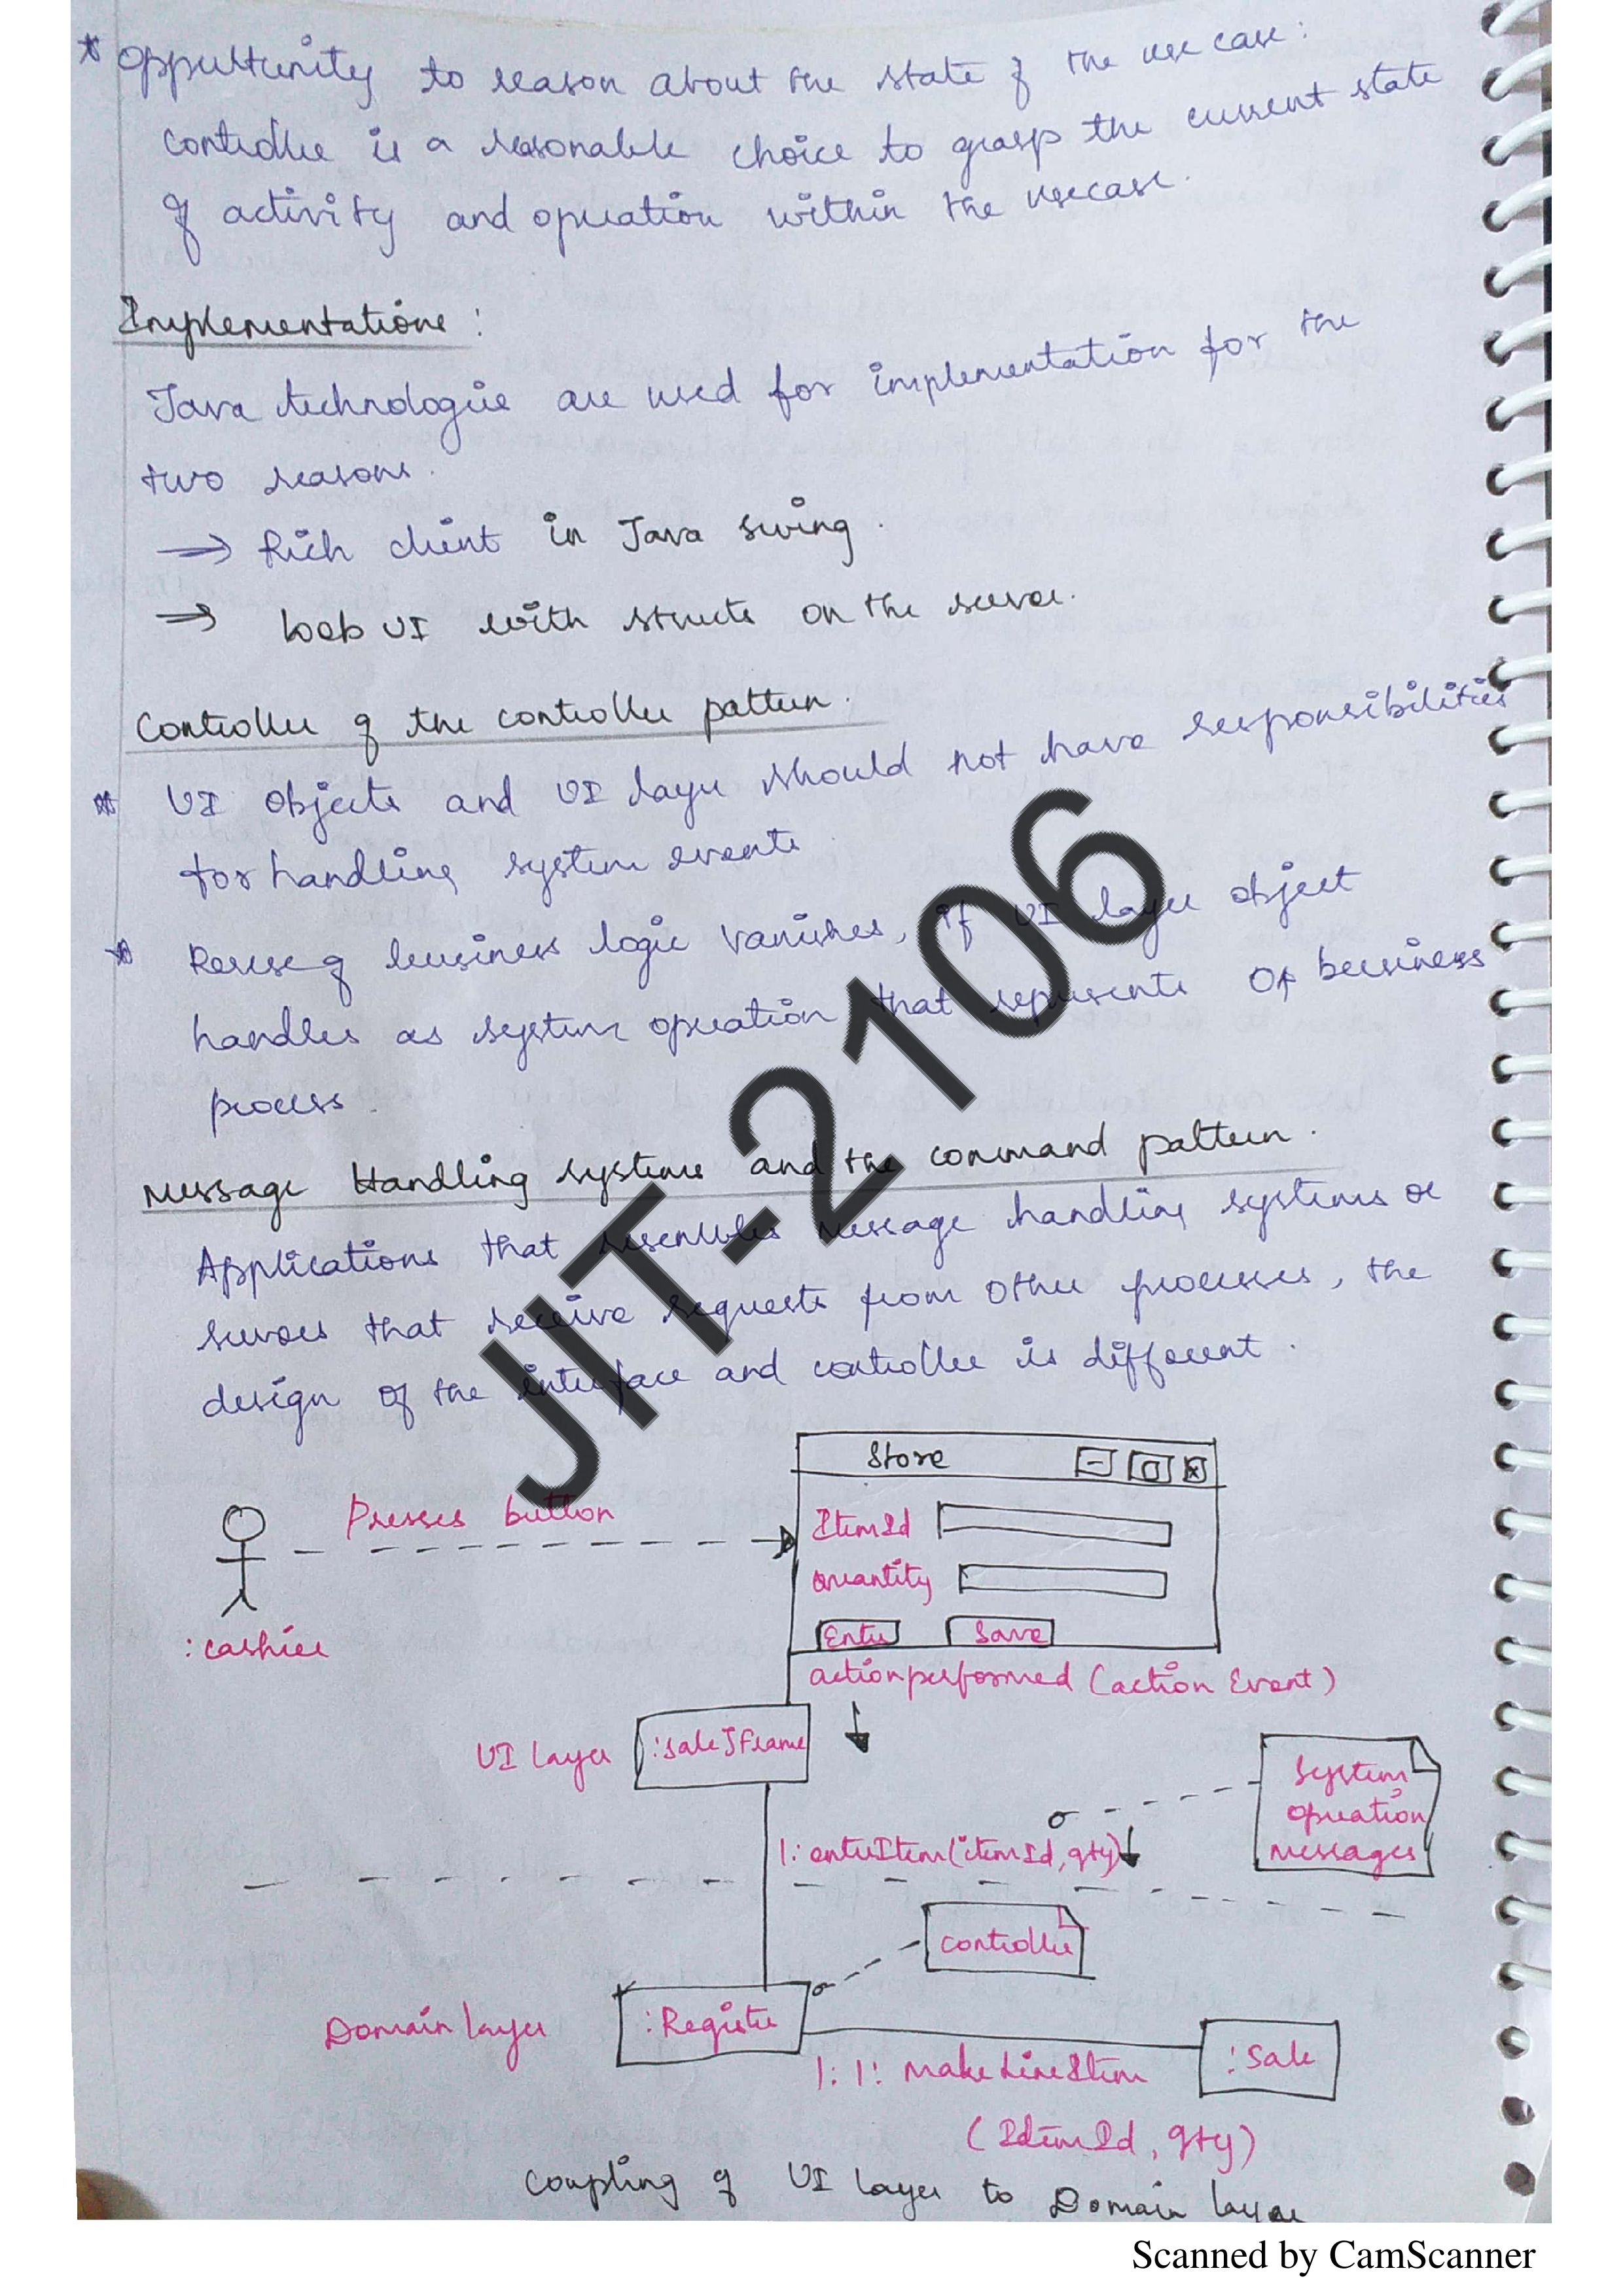 * Oppurtunity to reason about the state of the use case:
controller is a reasonable choice to grasp the current state
of activity and operation within the usecase.
Implementations:
Java technologie are used for implementation for the
two reasons.
→ Rich client in Java swing.
→ Web UI with structs on the server.
Controller of the controller pattern.
* UI objects and UI layer should not have responsibilities
for handling system events
* Reuse of business logic vanishes, if UI layer object
handles as system operation that represents of business
process.
Message Handling systems and the command pattern.
Applications that resembles message handling systems or
servers that receive requests from other processes, the
design of the interface and controller is different.
JIT-2106
Store
Presses button
ItemId
quantity
Enter Save
:cashier
actionperformed (action Event)
UI layer :saleJFrame
System
operation
messages
1: enterItem(itemId, qty)
controller
Domain layer :Register
:Sale
1:1: MakeLineItem
(ItemId, qty)
coupling of UI layer to Domain layer
Scanned by CamScanner